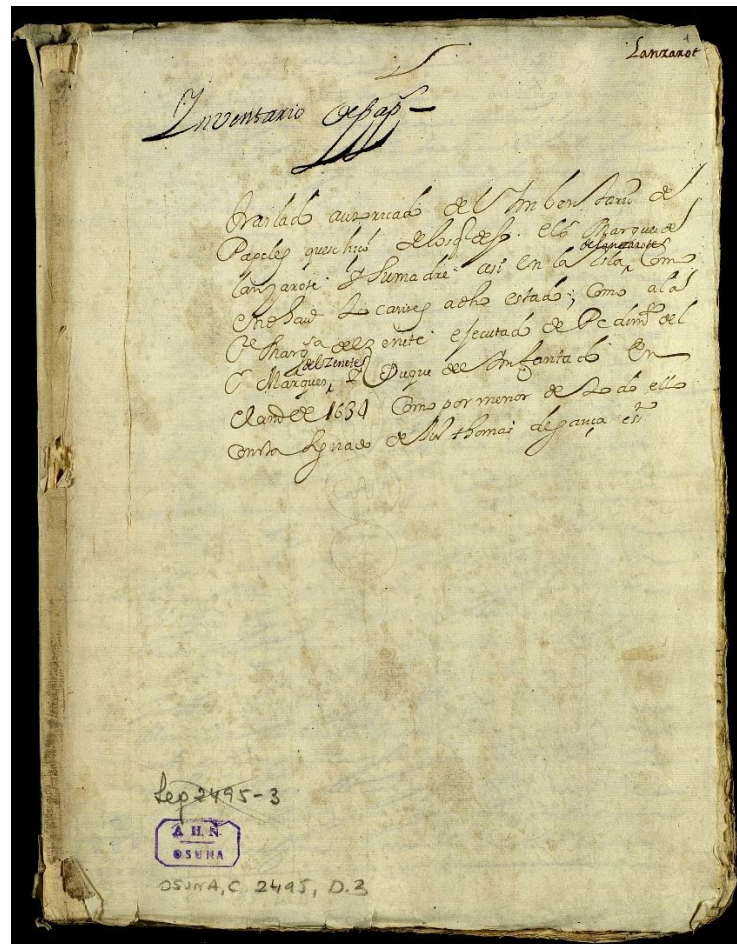 Lanzarot
Inventario de pap^s
traslado autoricado del Imbentario de
Papeles que se hiço de los q̃ dejo el S^r Marques de
lanzarote y su madre asi en la Isla de lanzarote como
en
tocantes a dho estado, como a la
S^ra Marq^sa del Zenete executado de Pedim^to del
S^r Marques del Zenete y Duque del Infantado En
el año de 1634 Como por menor de todo ello
consta signado de thomas de
Leg 2495-3
A. H. N.
OSUNA
OSUNA, C. 2495, D.3